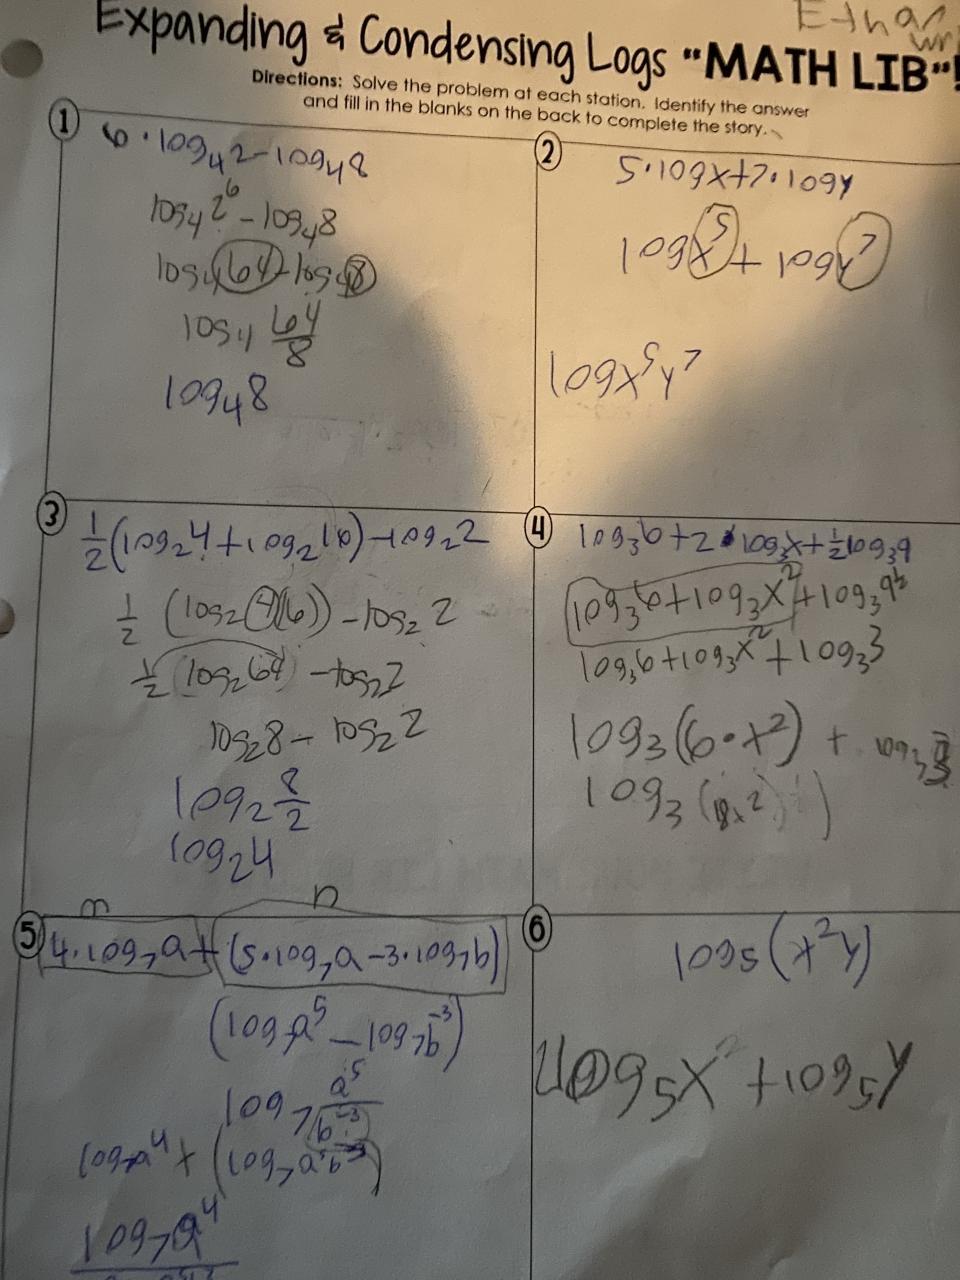 Expanding & Condensing Logs "MATH LIB"!
Ethan
Directions: Solve the problem at each station. Identify the answer
and fill in the blanks on the back to complete the story.
1
6 · log₄2 - log₄8
log₄2⁶ - log₄8
log₄64 - log₄8
log₄ 64/8
log₄8
2
5·logx+7·logy
logx⁵ + logy⁷
logx⁵y⁷
3
1/2(log₂4+log₂16)-log₂2
1/2 (log₂(4)(16)) - log₂2
1/2 (log₂64) - log₂2
log₂8 - log₂2
log₂ 8/2
log₂4
4
log₃6+2·log₃x+1/2log₃9
log₃6+log₃x²+log₃9^1/2
log₃6+log₃x²+log₃3
log₃(6·x²) + log₃3
log₃(18x²)
5
m n
4·log₇a+(5·log₇a-3·log₇b)
(log₇a⁵ - log₇b⁻³)
log₇ a⁵/b⁻³
log₇a⁴ +
log₇a⁴
6
log₅(x²y)
log₅x² + log₅y